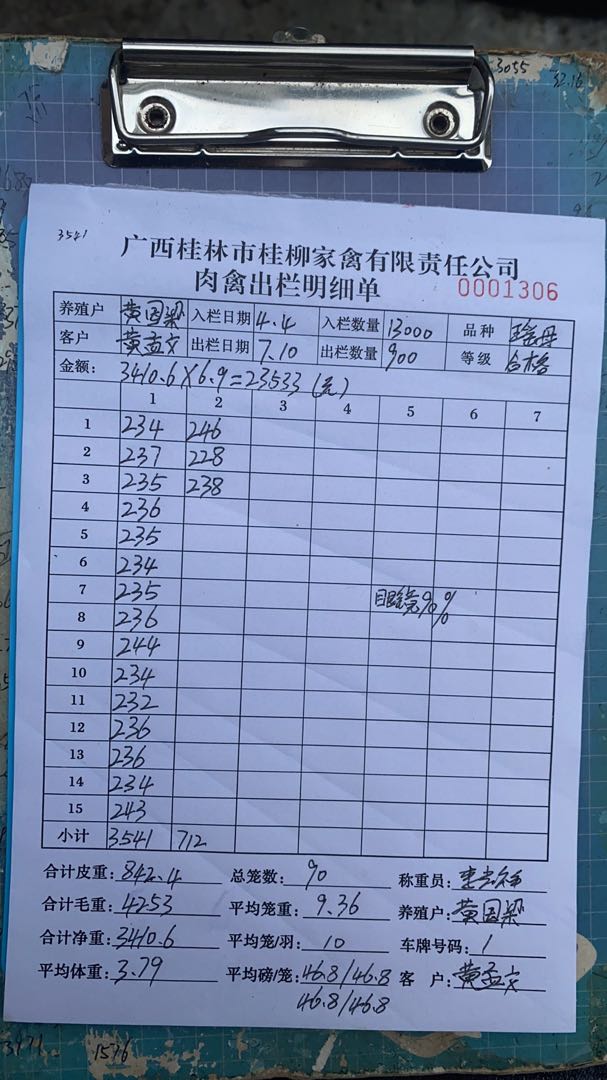 3055
3541
广西桂林市桂柳家禽有限责任公司
肉禽出栏明细单 0001306
养殖户 黄国梁 入栏日期 4.4 入栏数量 13000 品种 瑶母
客户 黄孟文 出栏日期 7.10 出栏数量 900 等级 合格
金额: 3410.6×6.9=23533(元)
1 2 3 4 5 6 7
1 234 246
2 237 228
3 235 238
4 236
5 235
6 234
7 235 眼镜90%
8 236
9 244
10 234
11 232
12 236
13 236
14 234
15 243
小计 3541 712
合计皮重: 842.4 总笼数: 90 称重员:
合计毛重: 4253 平均笼重: 9.36 养殖户: 黄国梁
合计净重: 3410.6 平均笼/羽: 10 车牌号码: 1
平均体重: 3.79 平均磅/笼: 46.8/46.8 客 户: 黄孟文
46.8/46.8
1576